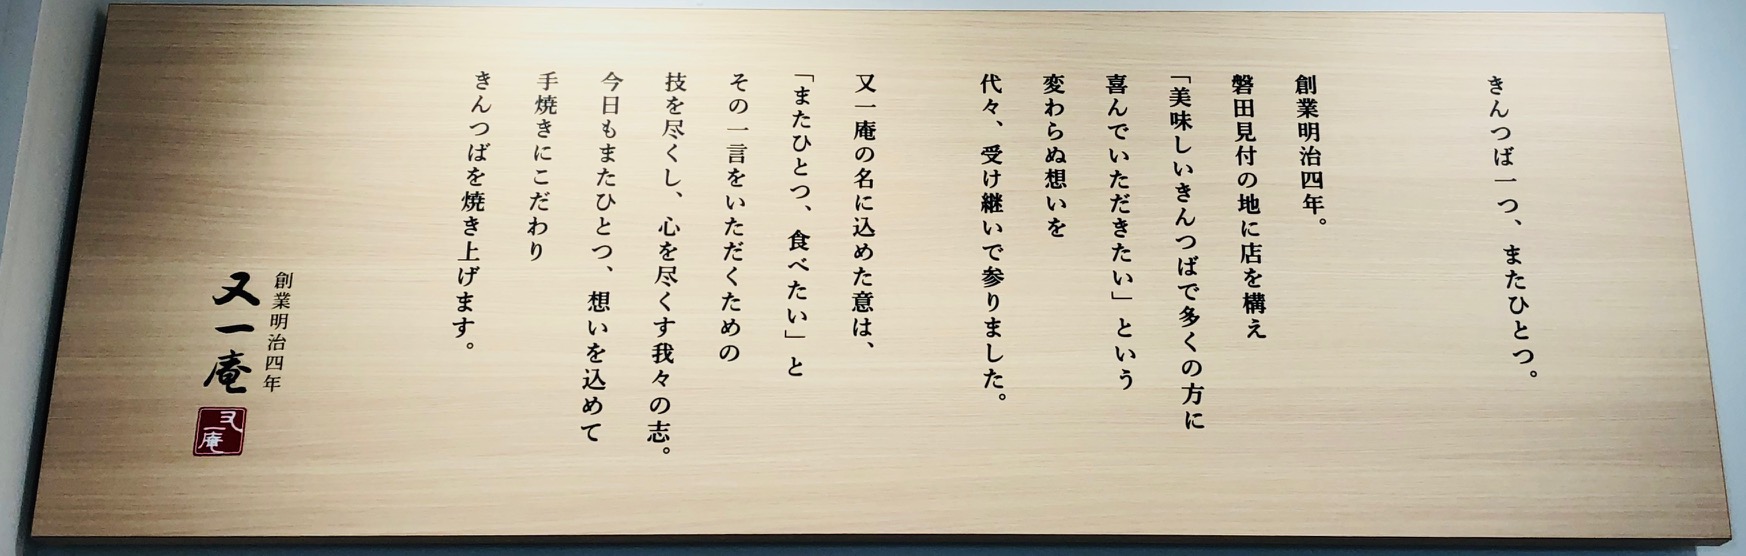 きんつば一つ、またひとつ。
創業明治四年。
磐田見付の地に店を構え
「美味しいきんつばで多くの方に
喜んでいただきたい」という
変わらぬ想いを
代々、受け継いで参りました。
又一庵の名に込めた意は、
「またひとつ、食べたい」と
その一言をいただくための
技を尽くし、心を尽くす我々の志。
今日もまたひとつ、想いを込めて
手焼きにこだわり
きんつばを焼き上げます。
創業明治四年
又一庵
又一庵